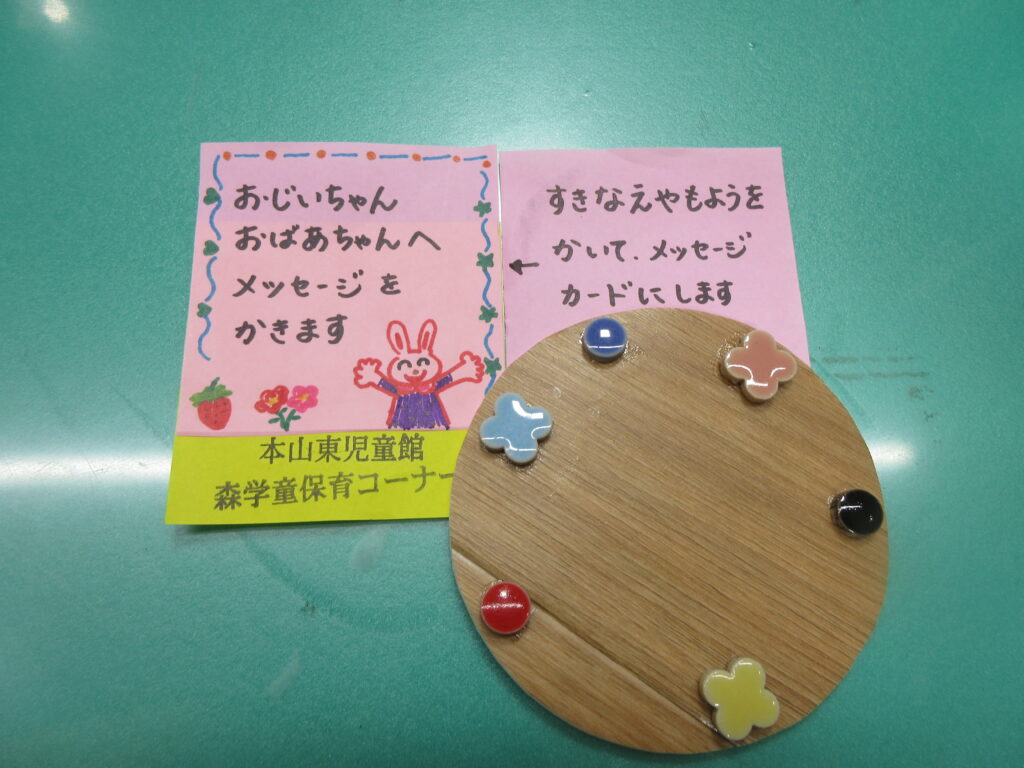 おじいちゃん
おばあちゃんへ
メッセージを
かきます
本山東児童館
森学童保育コーナー
すきなえやもようを
かいて、メッセージ
カードにします